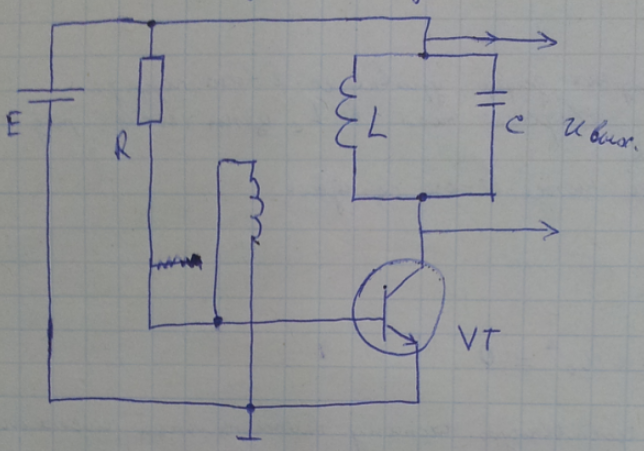 E
R
L
C
Uвых.
VT